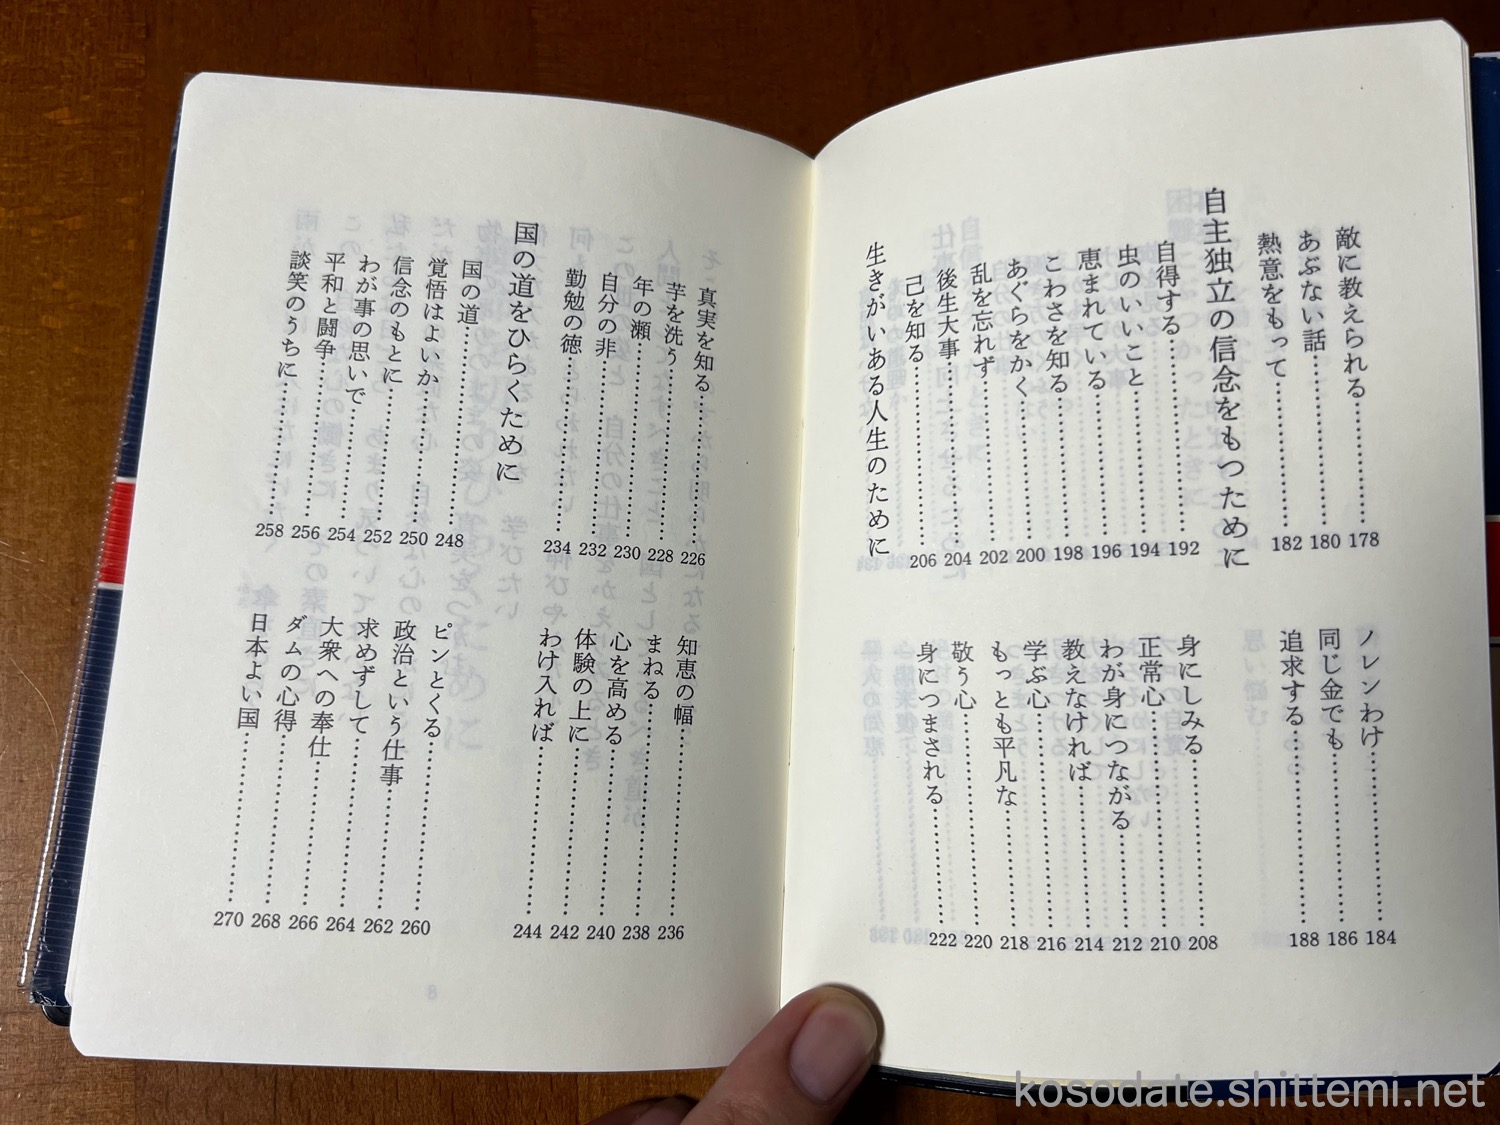 敵に教えられる……178
あぶない話……180
熱意をもって……182
ノレンわけ……184
同じ金でも……186
追求する……188
自主独立の信念をもつために
自得する……192
虫のいいこと……194
恵まれている……196
こわさを知る……198
あぐらをかく……200
乱を忘れず……202
後生大事……204
己を知る……206
身にしみる……208
正常心……210
わが身につながる……212
教えなければ……214
学ぶ心……216
もっとも平凡な……218
敬う心……220
身につまされる……222
生きがいある人生のために
真実を知る……226
芋を洗う……228
年の瀬……230
自分の非……232
勤勉の徳……234
知恵の幅……236
まねる……238
心を高める……240
体験の上に……242
わけ入れば……244
国の道をひらくために
国の道……248
覚悟はよいか……250
信念のもとに……252
わが事の思いで……254
平和と闘争……256
談笑のうちに……258
ピンとくる……260
政治という仕事……262
求めずして……264
大衆への奉仕……266
ダムの心得……268
日本よい国……270
8
kosodate.shittemi.net